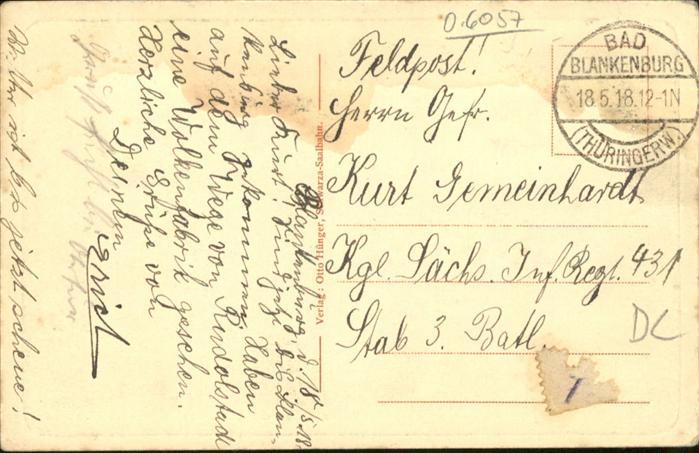 0.6057
BAD
BLANKENBURG
18.5.18.12-1N
(THÜRINGERW.)
Feldpost!
Herrn Gefr.
Kurt Gemeinhardt
Kgl. Sächs. Inf. Regt. 431
Stab 3. Batl.
DC
Verlag: Otto Hünger, Schwarza-Saalbahn.
Blankenburg, d. 18/5.18.
Lieber Kurt! Sind jetzt bis Blan-
kenburg gekommen, haben
auf dem Wege von Rudolstadt
eine Wolkenfabrik gesehen.
Herzliche Grüße von
Deinem
Erich
Wetter ist bis jetzt schene!